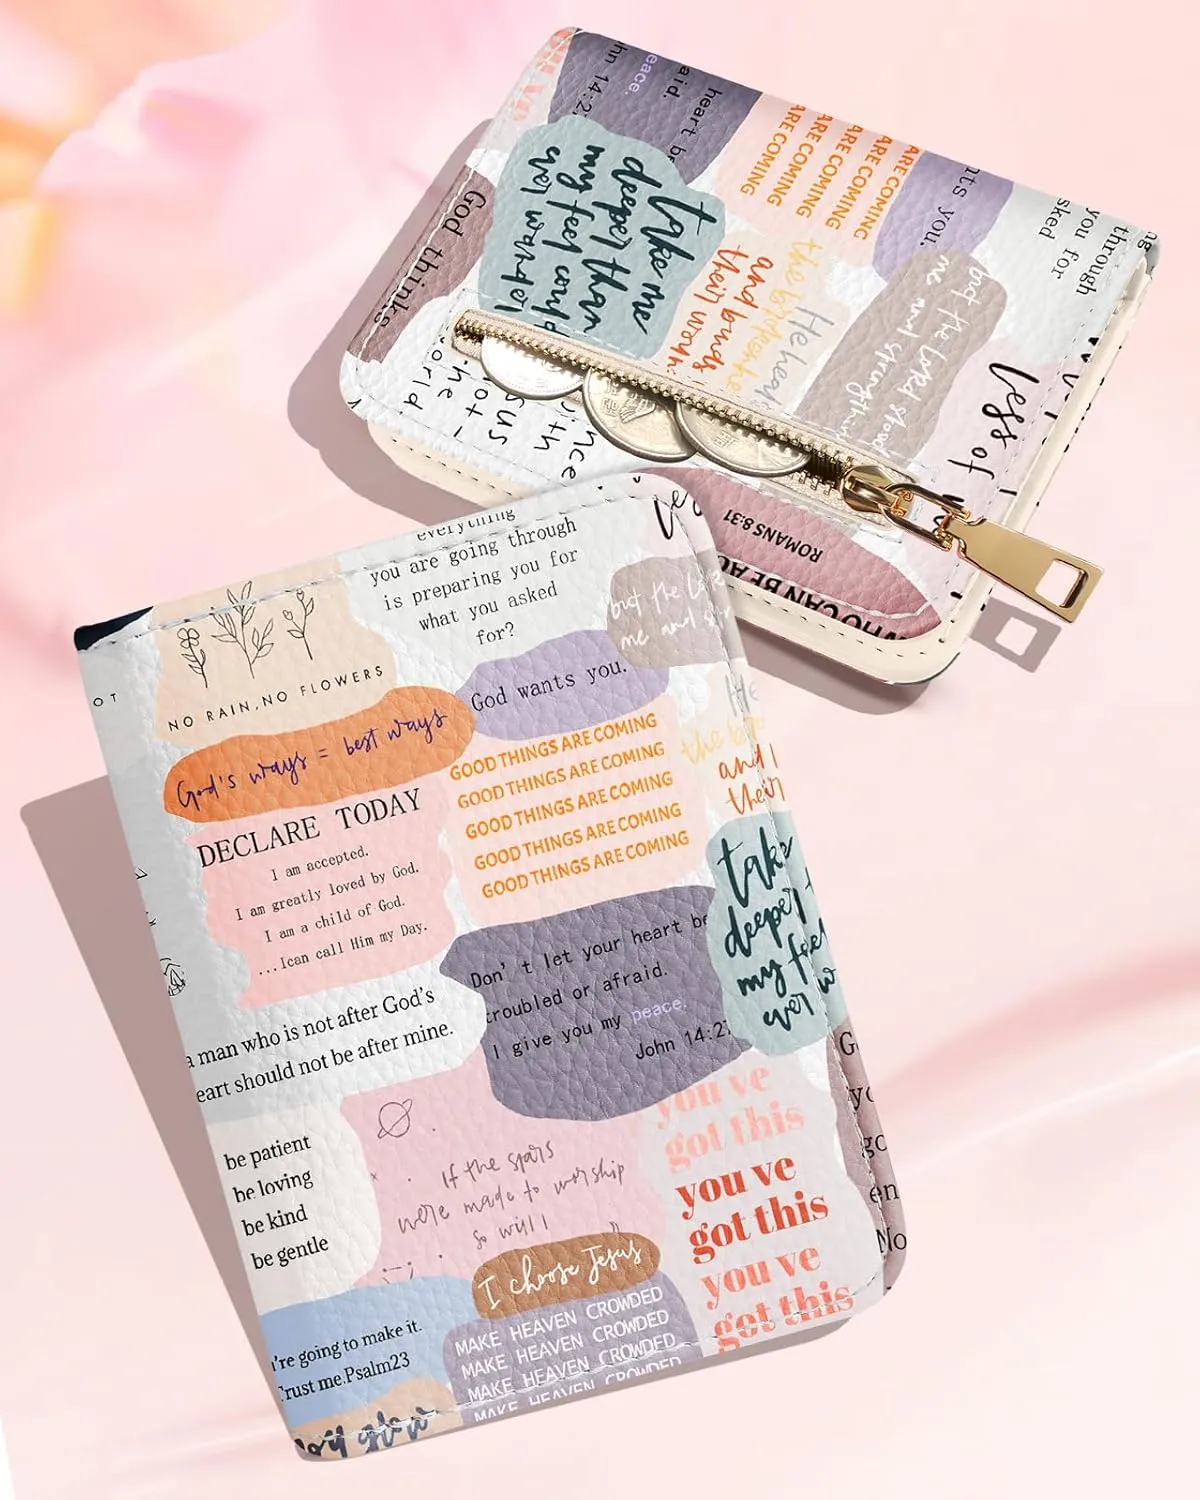 hn 14:2
eace.
aid.
heart be
ARE COMING
ARE COMING
ARE COMING
ARE COMING
ARE COMING
nts you.
you for
sked
through
take me
deeper than
my feet could
ever wander
God thinks
and binds
their woun
He heals
but the Lord stood
me and strengthen
less of
ROMANS 8:31
WHO CAN BE AG
everything
you are going through
is preparing you for
what you asked
for?
but the Lo
me and s
NO RAIN,NO FLOWERS
God's ways = best ways
God wants you.
GOOD THINGS ARE COMING
GOOD THINGS ARE COMING
GOOD THINGS ARE COMING
GOOD THINGS ARE COMING
GOOD THINGS ARE COMING
He
and
their
DECLARE TODAY
I am accepted.
I am greatly loved by God.
I am a child of God.
...Ican call Him my Day.
take
deeper
my feet
ever w
Don't let your heart be
troubled or afraid.
I give you my peace.
John 14:27
a man who is not after God's
eart should not be after mine.
be patient
be loving
be kind
be gentle
If the stars
were made to worship
so will I
you ve
got this
you ve
got this
you ve
got this
I choose Jesus
MAKE HEAVEN CROWDED
MAKE HEAVEN CROWDED
MAKE HEAVEN CROWDED
MAKE HEAVEN CROWDED
're going to make it.
Trust me.Psalm23
glow
OT